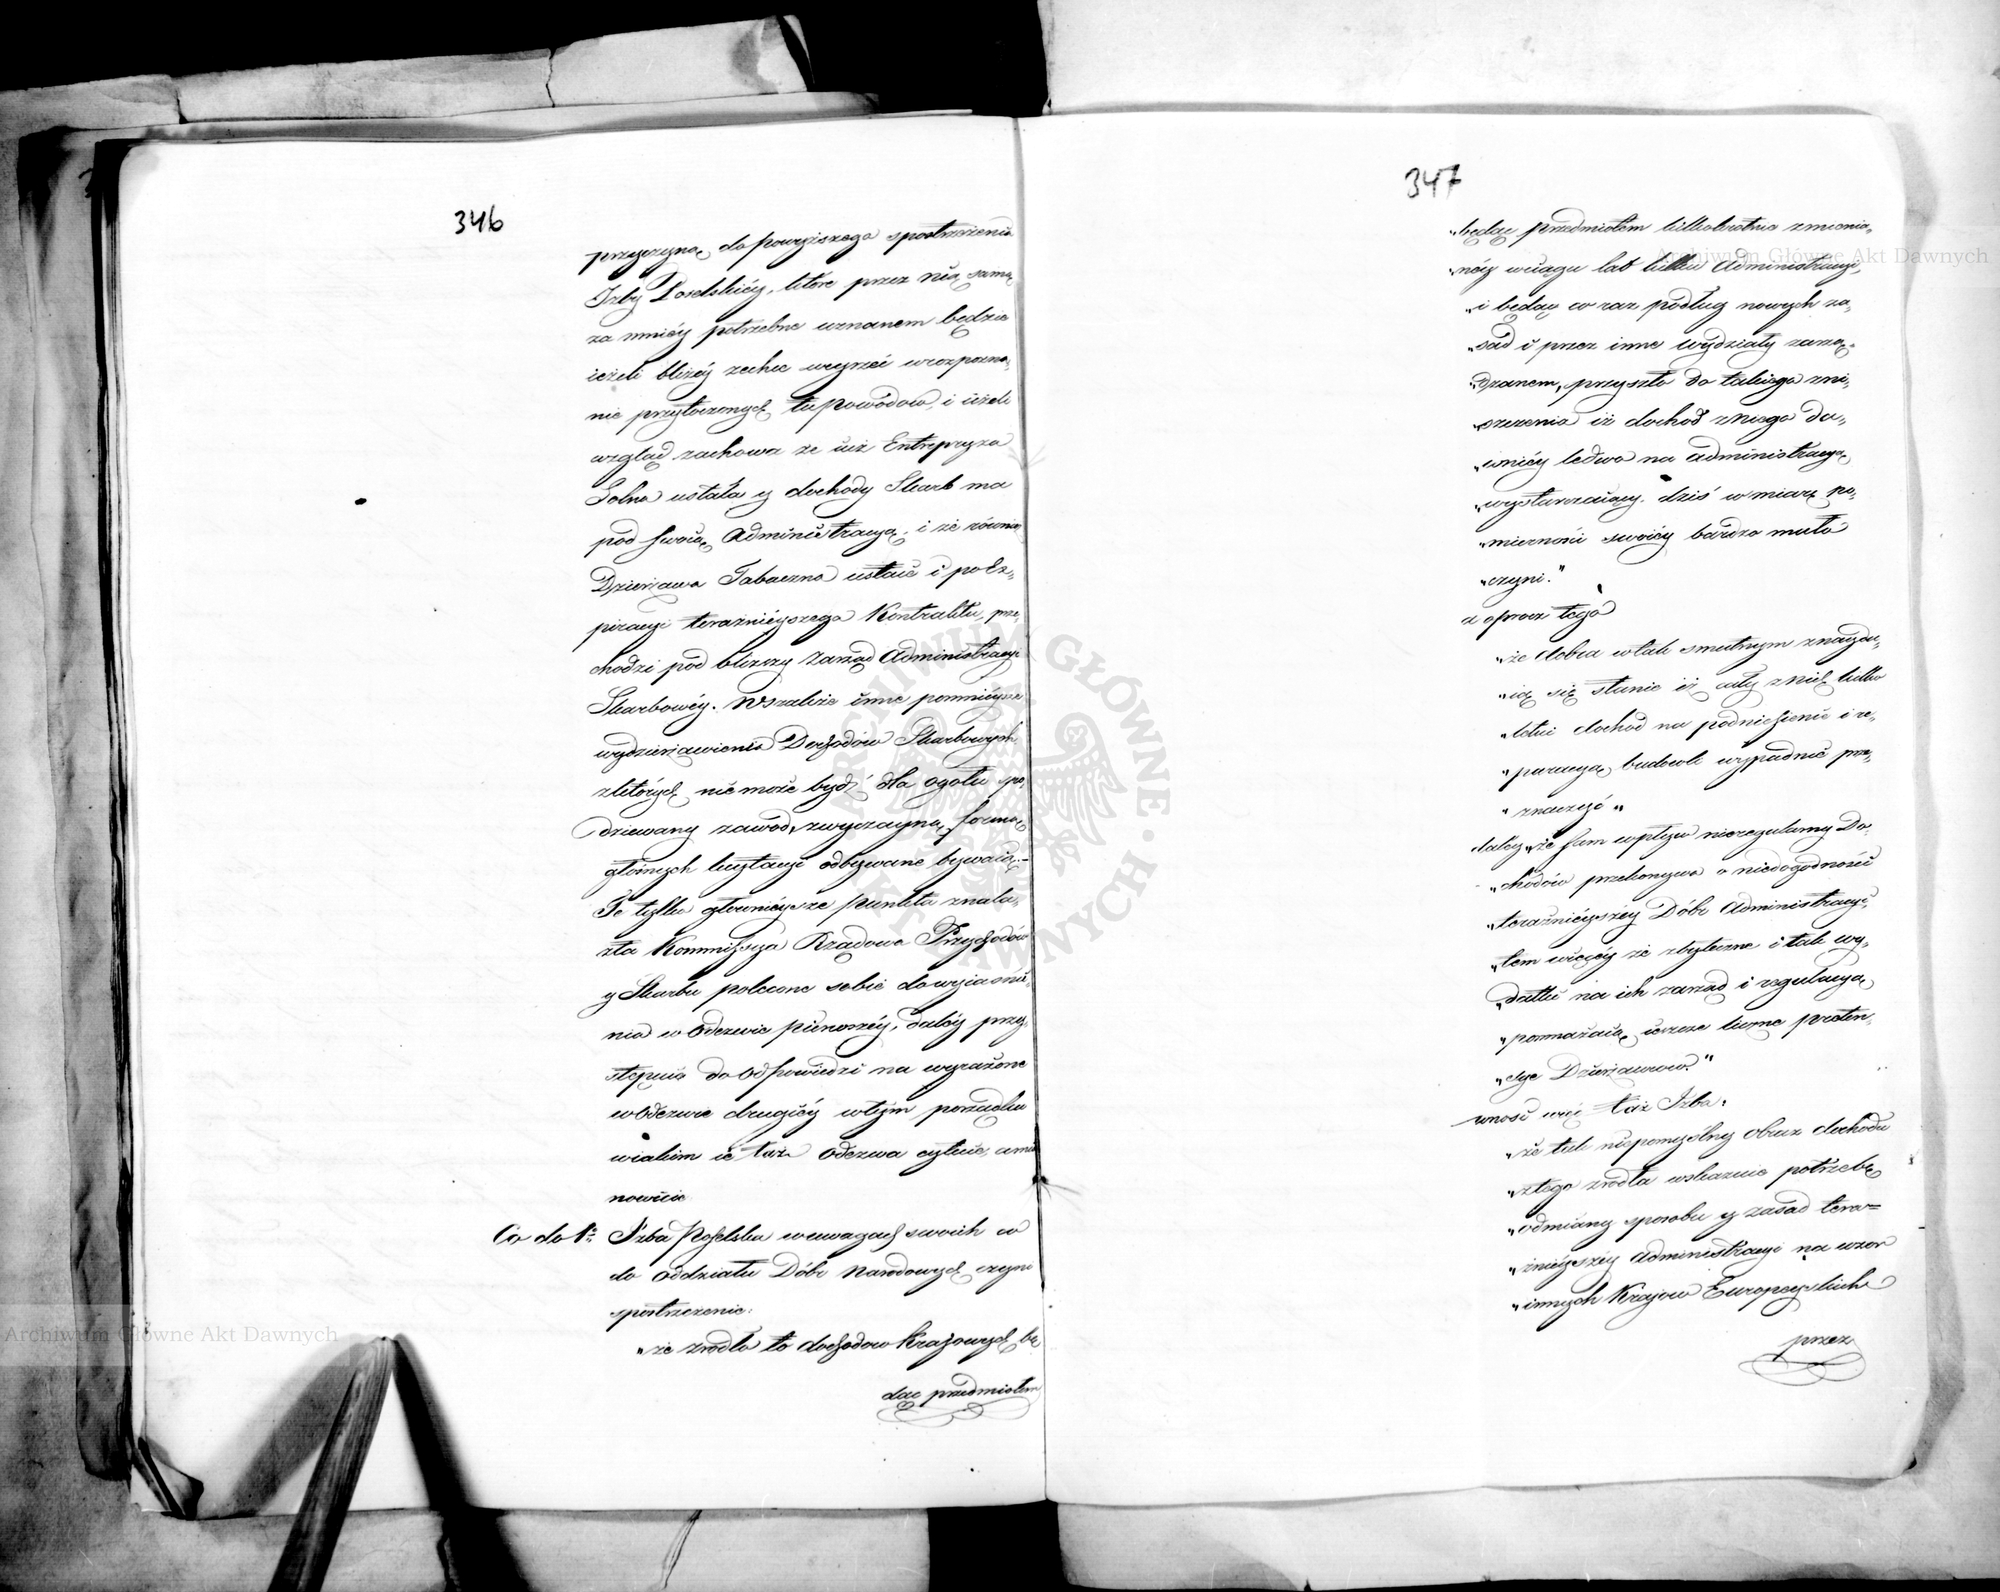 346
przyczyną do powyższego spostrzeżenia
Izby Poselskiéy, które przez nią samą
za mniéy potrzebne uznanem będzie
ieżeli bliżéy zechce weyrzeć w rozpozna„
nie przytoczonych tu powodów, i ieżeli
wzgląd zachowa że iuż Entrepryza
Solna ustała y dochody Skarb ma
pod swoią Administracyą, i że równie
Dzierżawa Tabaczna ustaie i po Ex„
piracyi teraźnieyszego Kontraktu, prze„
chodzi pod bliższy zarząd Administracyi
Skarbowéy. Wszakże inne pomnieysze
wydzierżawienia Dochodów Skarbowych
z których nie może bydź dla ogółu spo„
dziewany zawód, zwyczayną formą
głośnych licytacyi odbywane bywaią.
Te tylko głównieysze punkta znala„
zła Kommissya Rządowa Przychodów
y Skarbu polecone sobie do wyiaśnie„
nia w Odezwie pierwszéy, daléy przy„
stępuie do odpowiedzi na wyrażone
w Odezwie drugiéy w tym porządku
w iakim ie taż Odezwa cytuie, a mia
nowicie
Co do 1o Izba Poselska w uwagach swoich co
do oddziału Dóbr Narodowych czyni
spostrzeżenie:
„że źródło to dochodow Kraiowych bę
dąc przedmiotem
347
„będąc przedmiotem kilkokrotnie zmienia„
„néy w ciągu lat kilku Administracyi,
„i będąc co raz podług nowych za„
„sad i przez inne wydziały zarzą„
„dzanem, przyszło do takiego zni„
„szczenia iż dochód z niego da„
„wniéy ledwo na administracyą
„wystarczaiący, dziś w miarę po„
„mierności swoiéy bardzo mało
„czyni."
a oprocz tego
„że dobra w tak smutnym znaydu„
„ią się stanie iż cały z nich kilko
„letni dochod na podniesienie i re„
„paracyą budowli wypadnie prze„
„znaczyć„
daléy „że sam wpływ nieregularny Do„
„chodów przekonywa o niedogodności
„teraźnieyszéy Dóbr Administracyi,
„tem więcéy że zbyteczne i tak wy„
„datki na ich zarząd i regulacyą
„pomnażaią ieszcze liczne preten„
„sye Dzierżawców."
wnosi więc taż Izba:
„że tak niepomyślny obraz dochodu
„z tego źródła wskazuie potrzebę
„odmiany sposobu y zasad tera„
„źnieyszéy Administracyi na wzor
„innych Kraiow Europeyskich
przez
Archiwum Główne Akt Dawnych
Archiwum Główne Akt Dawnych
ARCHIWUM GŁÓWNE AKT DAWNYCH